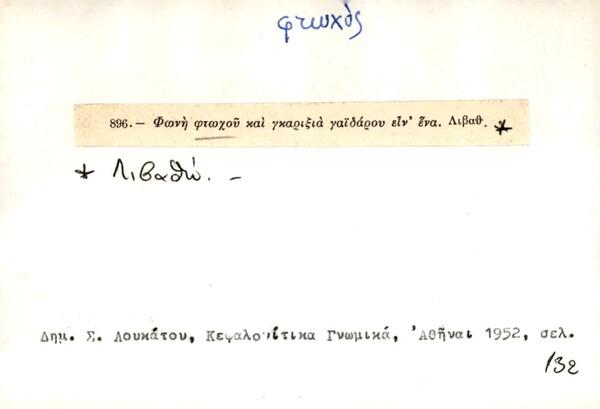 φτωχὸς
896.— Φωνὴ φτωχοῦ καὶ γκαριξιὰ γαϊδάρου εἶν' ἕνα. Λιβαθ. *
* Λιβαθώ. –
Δημ. Σ. Λουκάτου, Κεφαλονίτικα Γνωμικά, Ἀθῆναι 1952, σελ.
132